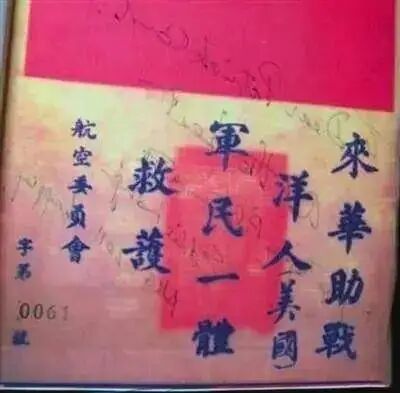 來華助戰
洋人(美國)
軍民一體
救護
航空委員會
字第0061號
Dear